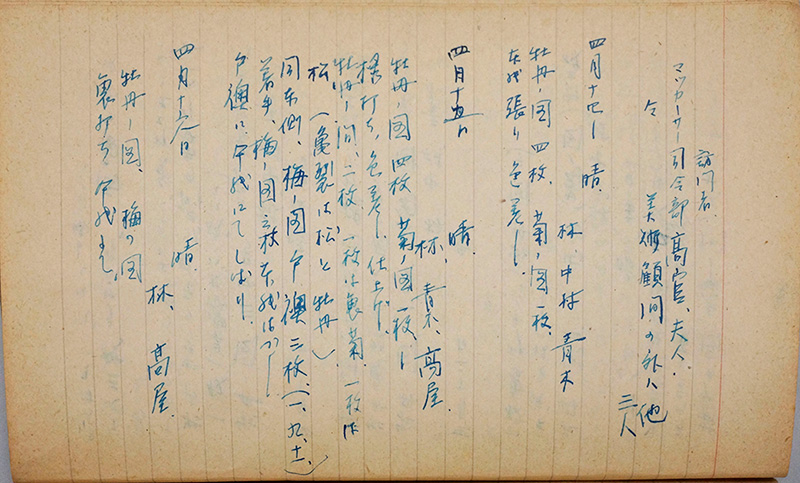 訪問者
マッカーサー司令部高官、夫人、
仝 美術顧問の外人他三人
四月十七日 晴、林、中村 青木
牡丹ノ図 四枚、菊ノ図一枚、
本紙張り 色差し、
四月十五日 晴、林、青木、高屋、
牡丹ノ図 四枚 菊ノ図一枚ノ
打ち、色差し、仕上げ、
牡丹ノ図、二枚、一枚は裏菊、一枚は
松、(亀裂は松と牡丹)
同東側、梅ノ図戸襖三枚(一、九、十一)
着手、梅ノ図三枚本紙はがし
戸襖は 紙にてしばり、
四月十六日 晴、林、高屋、
牡丹ノ図、梅の図
裏打ち 紙